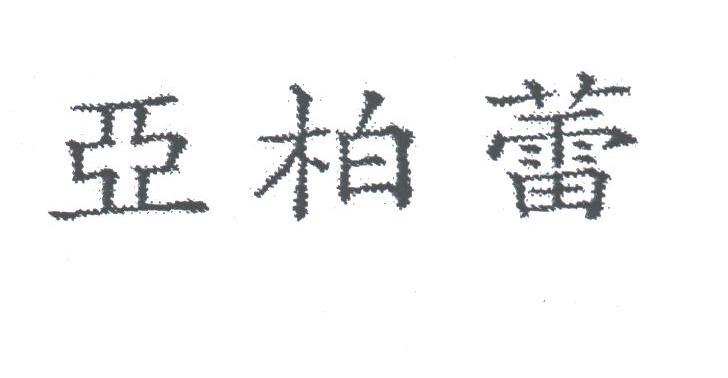 亞柏蕾